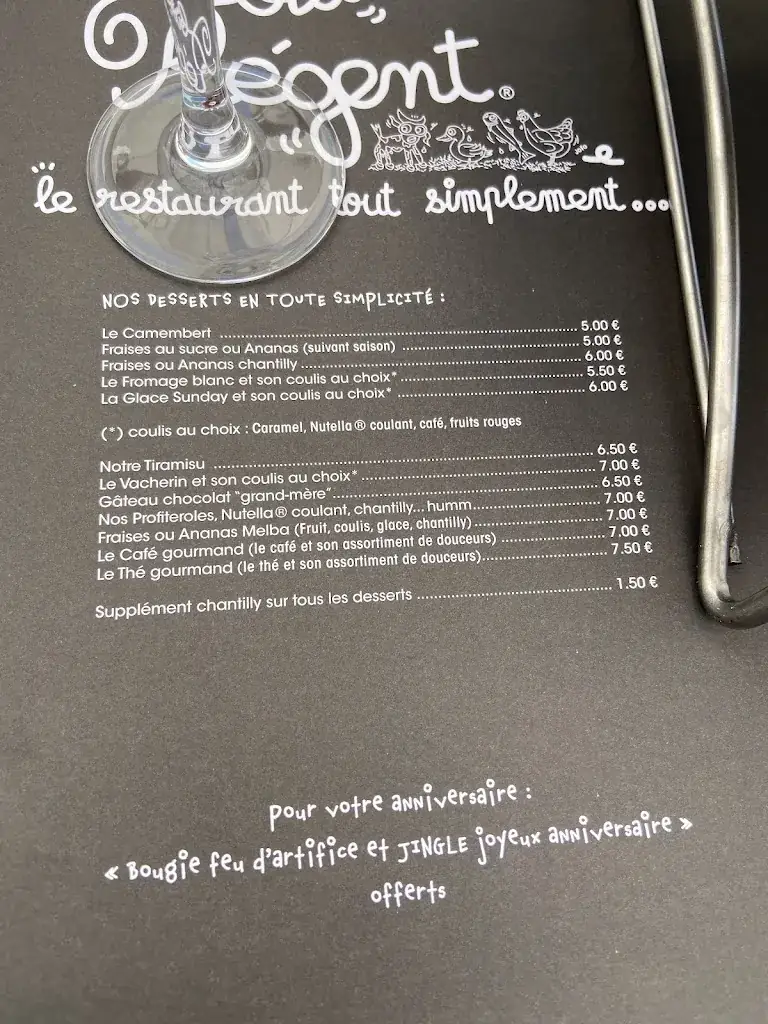 Régent®
le restaurant tout simplement...
NOS DESSERTS EN TOUTE SIMPLICITÉ :
Le Camembert 5.00 €
Fraises au sucre ou Ananas (suivant saison) 5.00 €
Fraises ou Ananas chantilly 6.00 €
Le Fromage blanc et son coulis au choix* 5.50 €
La Glace Sunday et son coulis au choix* 6.00 €
(*) coulis au choix : Caramel, Nutella® coulant, café, fruits rouges
Notre Tiramisu 6.50 €
Le Vacherin et son coulis au choix* 7.00 €
Gâteau chocolat "grand-mère" 6.50 €
Nos Profiteroles, Nutella® coulant, chantilly... humm 7.00 €
Fraises ou Ananas Melba (Fruit, coulis, glace, chantilly) 7.00 €
Le Café gourmand (le café et son assortiment de douceurs) 7.00 €
Le Thé gourmand (le thé et son assortiment de douceurs) 7.50 €
Supplément chantilly sur tous les desserts 1.50 €
pour votre anniversaire :
« Bougie feu d'artifice et JINGLE joyeux anniversaire »
offerts